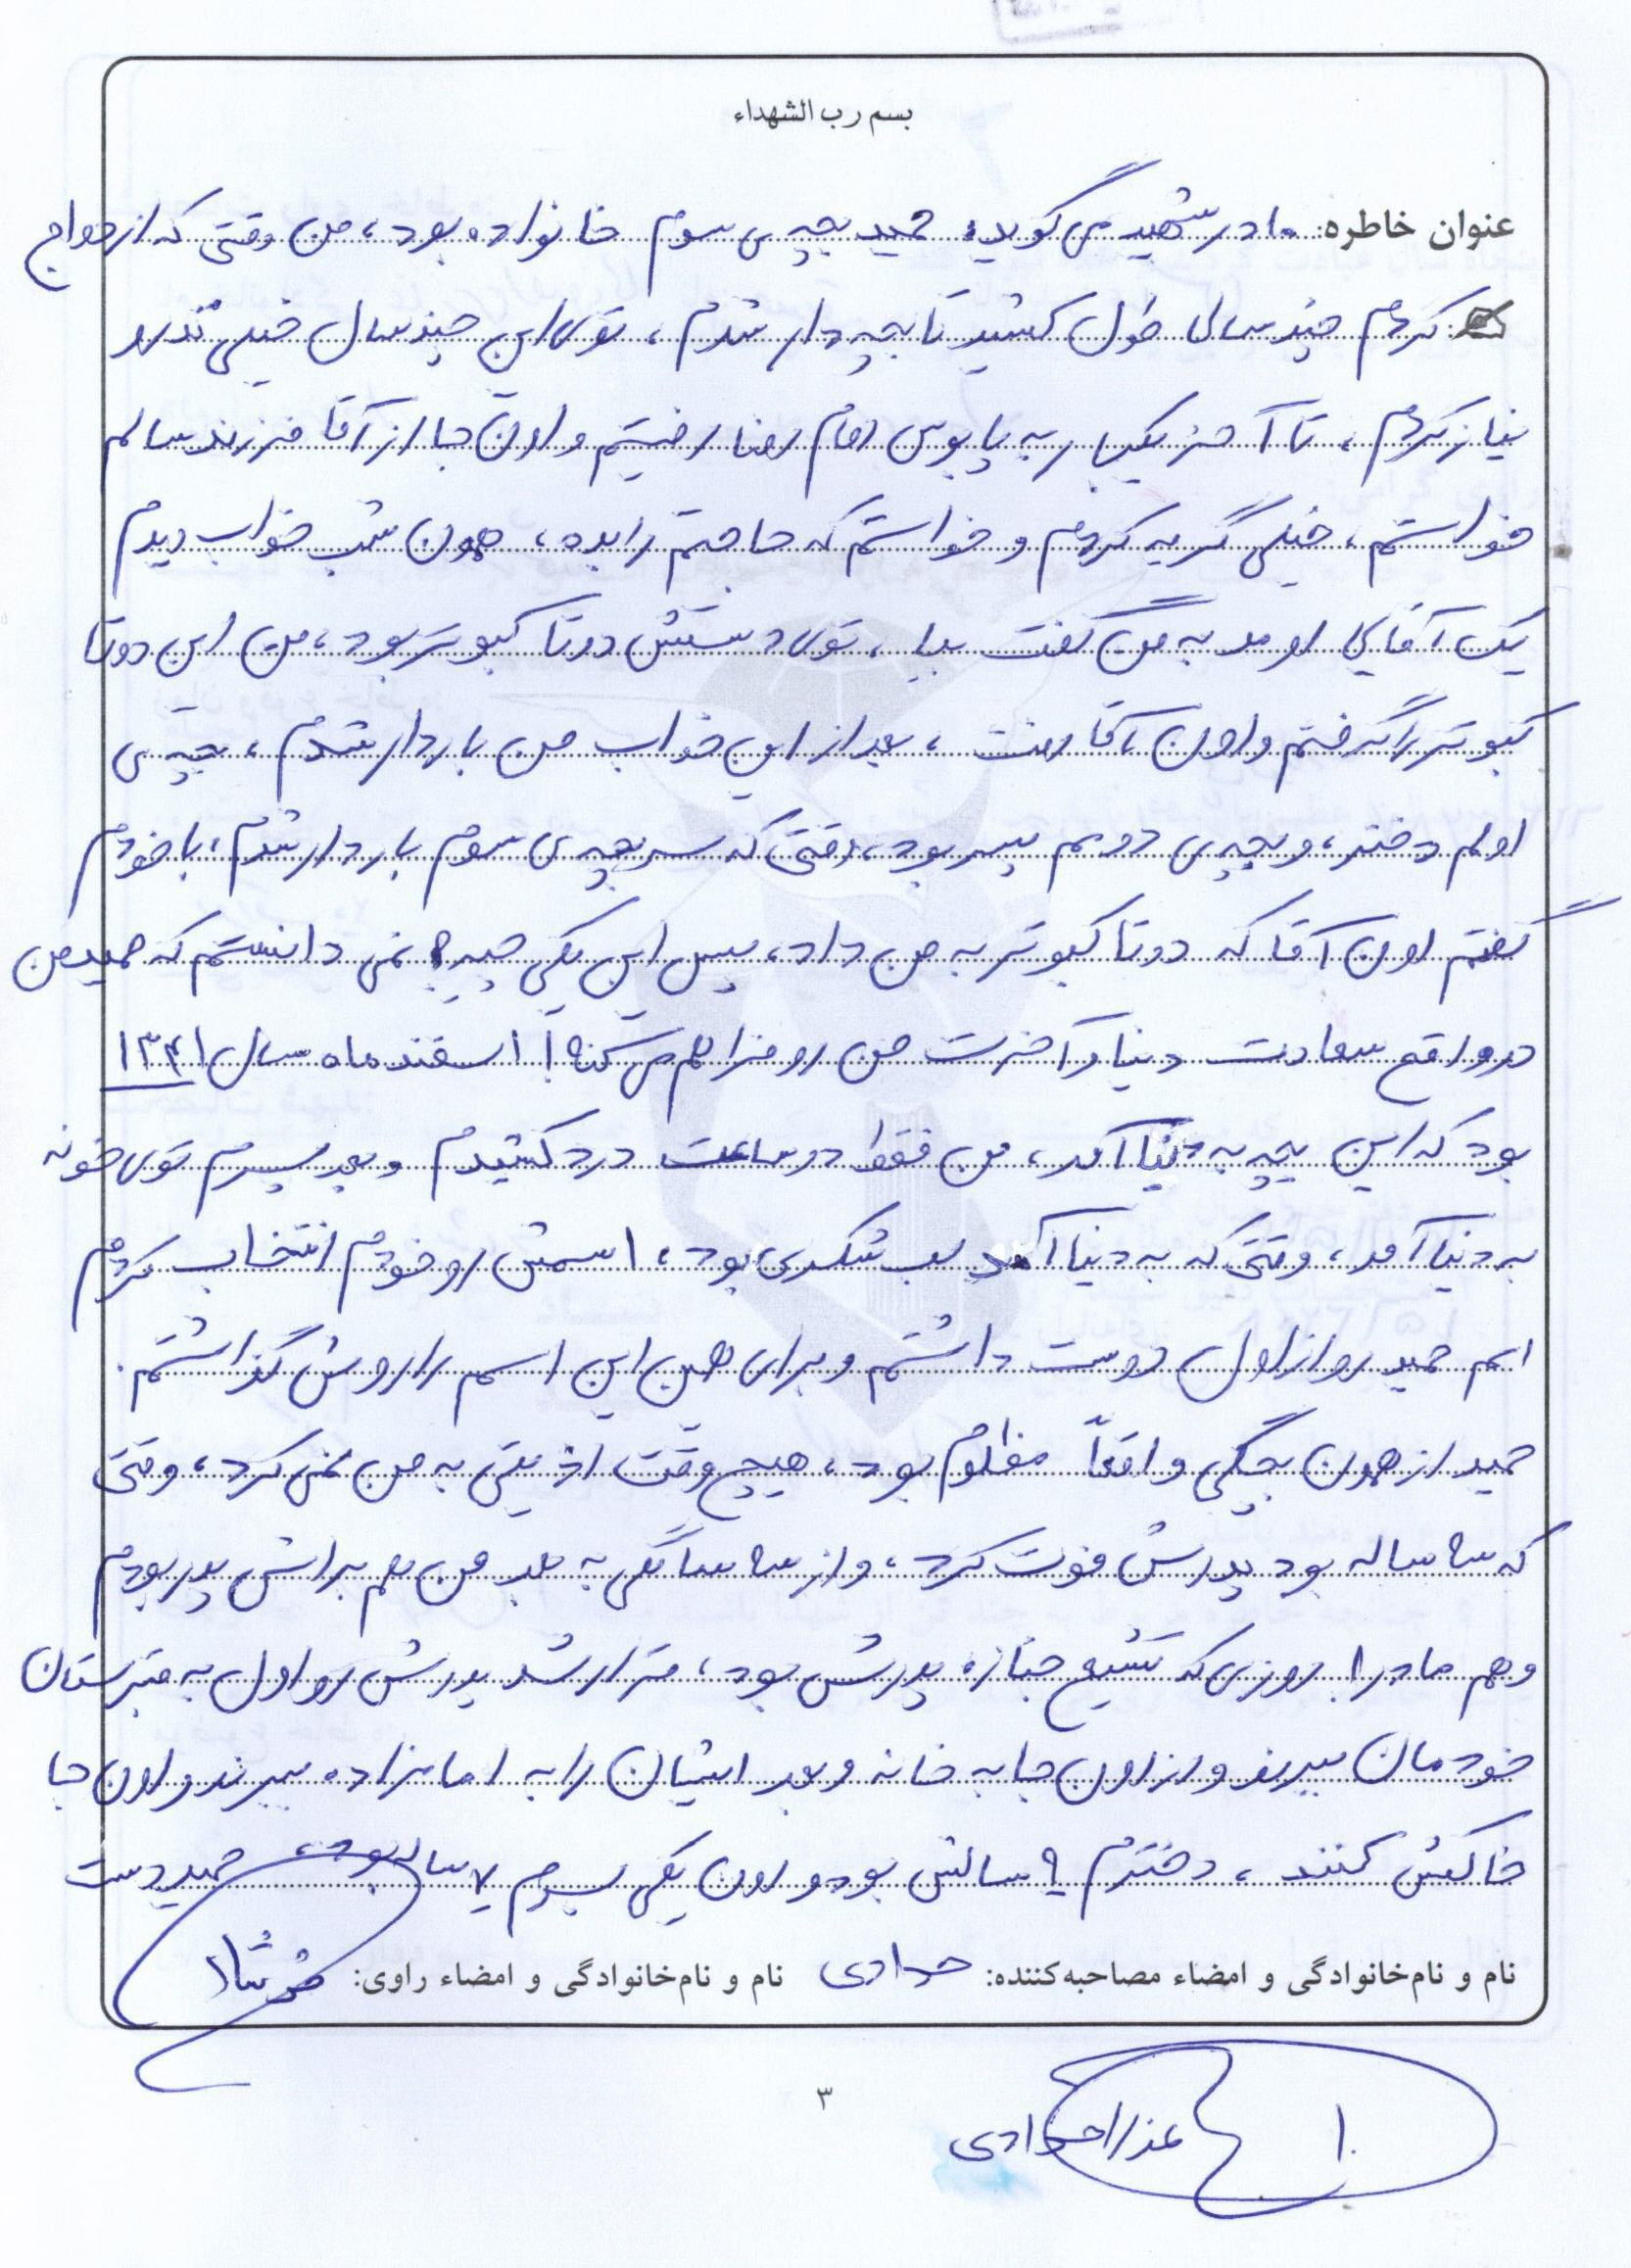 بسم رب الشهداء
عنوان خاطره: مادر شهید می گوید: حمید بچه ی سوم خانواده بود، من وقتی که ازدواج
کردم چند سال طول کشید تا بچه دار شدم، توی این چند سال خیلی نذر و
نیاز کردم، تا آخر یکبار به پابوس امام رضا رفتیم و اون جا از آقا فرزند سالم
خواستم، خیلی گریه کردم و خواستم که حاجتم را بده، همون شب خواب دیدم
یک آقایی اومد به من گفت بیا، توی دستش دوتا کبوتر بود، من این دوتا
کبوتر را گرفتم و اون آقا رفت، بعد از این خواب من باردار شدم، بچه ی
اولم دختر، و بچه ی دومم پسر بود، وقتی که سر بچه ی سوم باردار شدم، با خودم
گفتم اون آقا که دوتا کبوتر به من داد، پس این یکی چیه؟ نمی دانستم که حمید من
در واقع سعادت دنیا و آخرت من رو فراهم می کنه! اسفند ماه سال ۱۳۴۱
بود که این بچه به دنیا آمد، من فقط دو ساعت درد کشیدم و بعد پسرم توی خونه
به دنیا آمد، وقتی که به دنیا آمد لب شکری بود، اسمش رو خودم انتخاب کردم
اسم حمید رو از اول دوست داشتم و برای همین این اسم را روش گذاشتم.
حمید از همون بچگی واقعاً مظلوم بود، هیچ وقت اذیتی به من نمی کرد، وقتی
که ۳ ساله بود پدرش فوت کرد، و از ۳ سالگی به بعد من هم براش پدر بودم
و هم مادر! روزی که تشییع جنازه پدرش بود، قرار شد پدرش رو اول به قبرستان
خودمان ببرند و از اون جا به خانه و بعد ایشان را به امامزاده ببرند و اون جا
خاکش کنند، دخترم ۹ سالش بود و اون یکی پسرم ۷ ساله بود، حمید دست
نام و نام‌خانوادگی و امضاء مصاحبه‌کننده: جوادی نام و نام‌خانوادگی و امضاء راوی:
۳
۱ عذرا جوادی